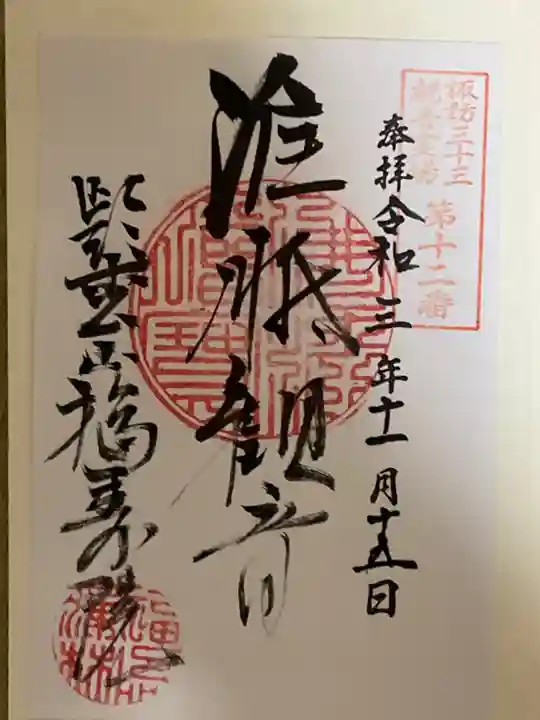 諏訪三十三
観音霊場
第十二番
奉拝 令和三年十一月十五日
准胝観音
山福寿院